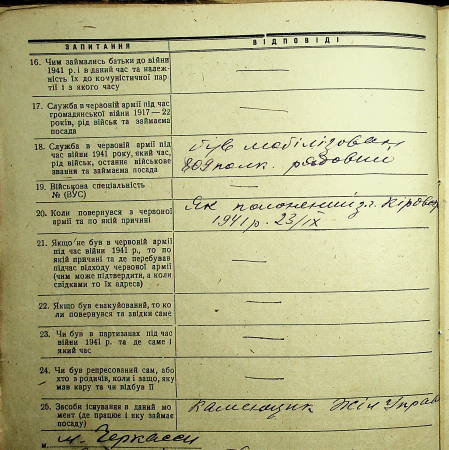 ЗАПИТАННЯ ВІДПОВІДІ
16. Чим займались батьки до війни
1941 р. і в даний час та належ-
ність їх до комуністичної пар-
тії і з якого часу
17. Служба в червоній армії під час
громадянської війни 1917—22
років, рід військ та займаєма
посада
18. Служба в червоній армії під
час війни 1941 року, який час,
рід військ, останнє військове
звання та займаєма посада
був мобілізован
809 полк. рядовий
19. Військова спеціальність
№ (ВУС)
20. Коли повернувся з червоної
армії та по якій причині
Як положений
1941 р. 23/IX
21. Якщо не був в червоній армії
під час війни 1941 р., то по
якій причині та де перебував
підчас відходу червоної армії
(чим може підтвердити, а коли
свідками то їх адреса)
22. Якщо був евакуйований, то ко-
ли повернувся та звідки саме
23. Чи був в партизанах під час
війни 1941 р. та де саме і
який час
24. Чи був репресований сам, або
хто з родичів, коли і защо, яку
мав кару та чи відбув її
25. Засоби існування в даний мо-
мент (де працює і яку займає
посаду)
Каменщик Жил Управ
м. Черкасси